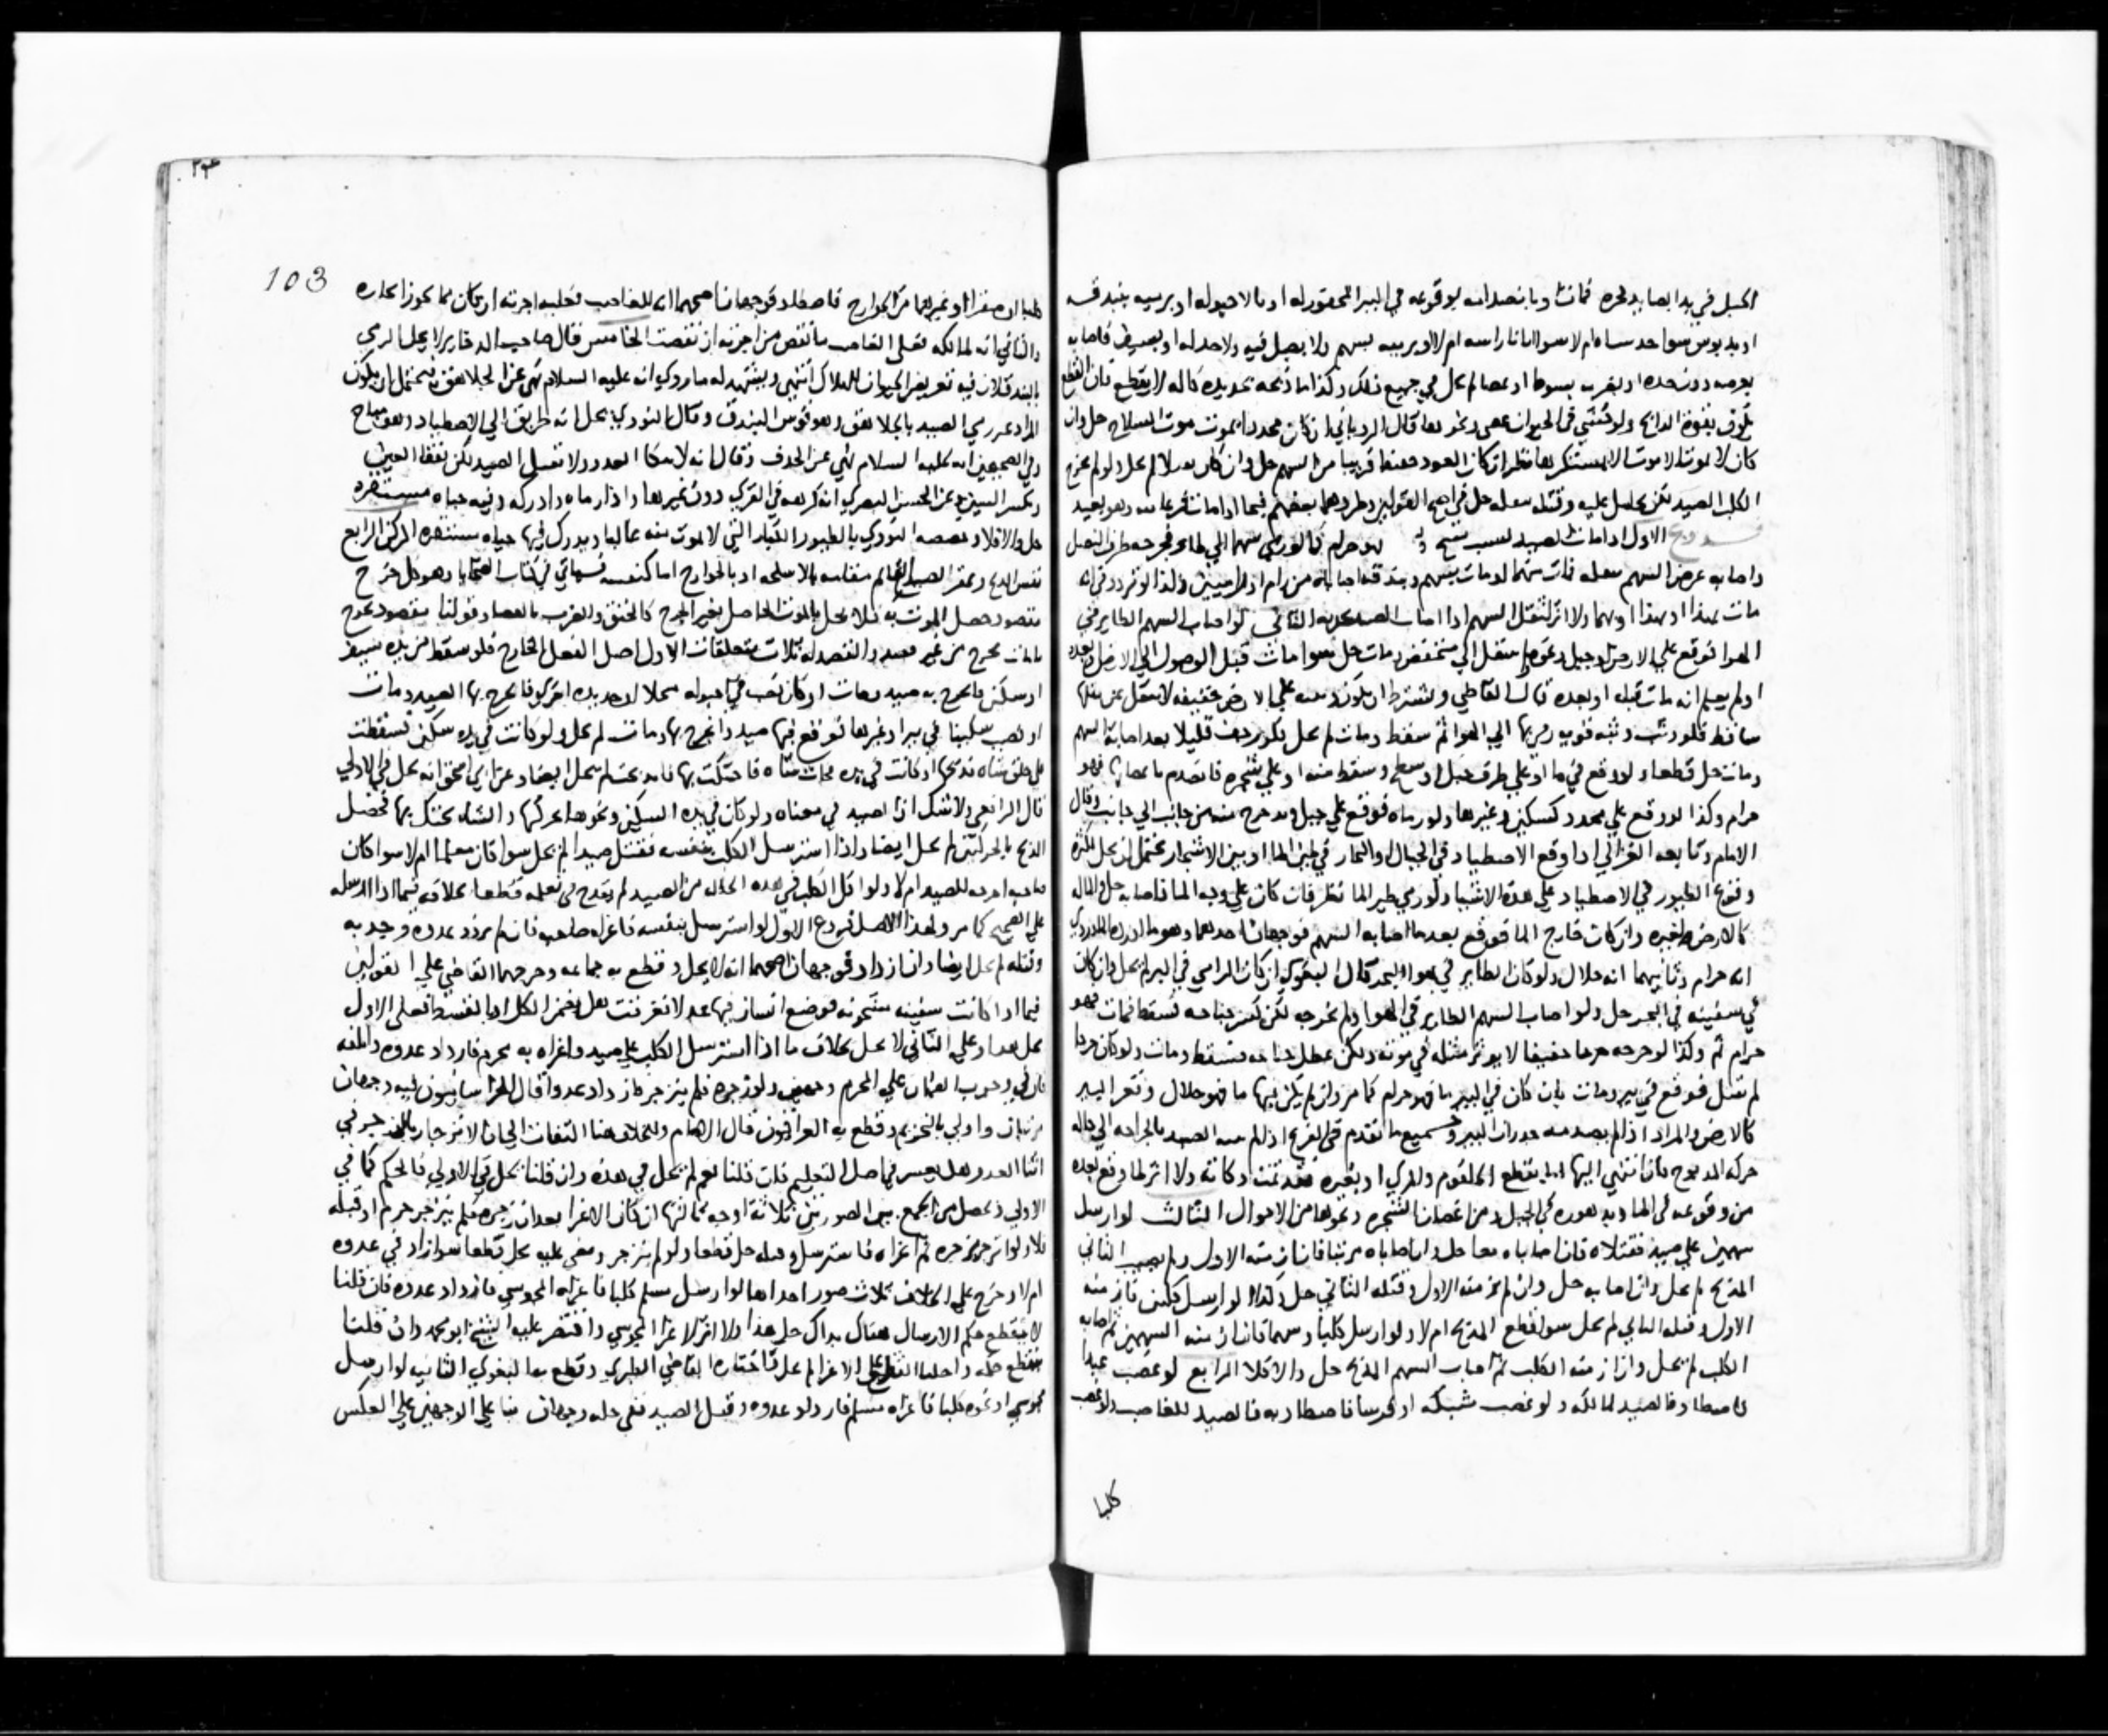 الحبل في يد الصايد لجره فمات وبانصدامه بوقوعه في البير المحفور له او بالاحبولة او برميه ببندقه
او بدبوس سوا خدساه ام لا سوا ابانا راسه ام لا او يرميه بسهم ولا نصل فيه ولا حد له او بسيف فاصابه
بعرضه دون حده او بضرب بسوط او عصا لم يحل في جميع ذلك وكذا ما ذبحه بحديدة كالة لا يقطع فان القطع
يكون بقوة الذابح ولو في الحيوان عصى ونحوها قال الروياني ان كان محددا يموت موت السلاح حل وان
كان لا يموت الا موت المستنكرها نظر ان كان العود خفيفا قريبا من السهم حل وان كان لا لم يحل ولو لم يجرح
الكلب الصيد لكن تحامل عليه وقتله بثقله حل في اصح القولين وطردهما بعضهم فيما اذا مات فزعا منه وهو بعيد
فروع الاول اذا مات الصيد بسبب مبيح و حرام كما لو رمى سهما الى طاير فجرحه طرف النصل
واصابه عرض السهم بثقله فمات منهما او مات بسهم وبندقة اصاباه من رام او راميين وكذا لو تردد في انه
مات بهذا او بهذا او بهما ولا اثر لثقل السهم اذا اصاب الصيد بحده الثاني لو اصاب السهم الطاير في
الهوا فوقع على الارض او جبل ونحوه متقل الى منخفض ومات حل سوا مات قبل الوصول الى الارض او بعده
او لم يعلم انه مات قبله او بعده قال القاضي ويشترط ان يكون وقعته على الارض خفيفة
ساقط فلو وثب وثبة قوية الى الهوا ثم سقط ومات لم يحل قليلا بعد اصابة السهم
ومات حل قطعا ولو وقع في ما او على طرف جبل او سطح وسقط منه او على شجرة فانصدم باغصانها فهو
حرام وكذا لو وقع على محدد كسكين وغيرها ولو رماه فوقع على جبل وتدحرج منه من جانب الى جانب وقال
الامام وتابعه الغزالي اذا وقع الاصطياد في الجبال والبحار في طير الما او بين الاشجار يحتمل ان يحل لكثرة
وقوع الطيور في الاصطياد على هذه الاشيا ولو رمى طير الما نظر فان كان على وجه الما فاصابه حل والما له
كالارض لغيره وان كان خارج الما فوقع بعد ما اصابه السهم فوجهان احدهما وهو ما اورده الماوردي
انه حرام وثانيهما انه حلال ولو كان الطاير في هوا البحر قال البغوي ان كان الرامي في البر لم يحل وان كان
في سفينة في البحر حل ولو اصاب السهم الطاير في الهوا ولم يجرحه لكن كسر جناحه فسقط فمات فهو
حرام ثم وكذا لو جرحه جرحا خفيفا لا يوثر مثله في موته ولكن عطل جناحه فسقط ومات ولو كان جرحا
لم تقتل فوقع في بير ومات بان كان في البير ما فهو حرام كما مر وان لم يكن فيها ما فهو حلال وقعر البير
كالارض والمراد اذا لم يصدمه جدران البير وجميع ما تقدم في الفرع اذا لم ينته الصيد بالجراحة الى حالة
حركة المذبوح فان انتهى اليها بقطع الحلقوم والمري او بغيره فقد تمت ذكاته ولا اثر لما وقع بعده
من وقوعه في الما وتدهوره في الجبل ومن اغصان الشجرة ونحوها من الاحوال الثالث لو ارسل
سهمين على صيد فقتلاه فان اصاباه معا حل وان اصاباه مرتبا فان ازمنه الاول ولم يصب الثاني
المذبح لم يحل وان اصابه حل وان لم يزمنه الاول وقتله الثاني حل وكذا لو ارسل كلبين فازمنه
الاول وقتله الثاني لم يحل سوا قطع المذبح ام لا ولو ارسل كلبا وسهما فان ازمنه السهم ثم اصابه
الكلب لم يحل وان ازمنه الكلب ثم اصاب السهم المذبح حل والا فلا الرابع لو غصب عبدا
فاصطاد فالصيد لمالكه ولو غصب شبكة او قوسا فاصطاد به فالصيد للغاصب ولو غصب
كلبا
١٠٣
103
كلبا او صقرا او غيرهما من الجوارح فاصطاد فوجهان اصحهما انه للغاصب فعليه اجرته ان كان مما يجوز ايجاره
والثاني انه لمالكه فعلى الغاصب ما نقص من اجرته ان نقصت الخامس قال صاحب الدخاير لا يحل الرمي
بالبندق لان فيه تعريض الحيوان للهلاك انتهى ويشهد له ما روي انه عليه السلام نهى عن الجلاهق فيحتمل ان يكون
المراد عدم رمي الصيد بالجلاهق وهو قوس البندق وقال النووي يحل لانه طريق الى الاصطياد وهو مباح
وفي الصحيحين انه عليه السلام نهى عن الخذف وقال انه لا ينكا العدو ولا يقتل الصيد لكن يفقا العين
ويكسر السن وعن الحسن البصري انه كرهه في القرى دون غيرها واذا رماه وادركه وفيه حياة مستقرة
حل والا فلا وخصصه النووي بالطيور الكبار التي لا تموت منه غالبا ويدرك فيها حياة مستقرة الركن الرابع
نفس الذبح وعقر الصيد القايم مقامه بالاسلحة او بالجوارح اما كنفسه فسياتي في كتاب الضحايا وهو كل جرح
مقصود حصل الموت به فلا يحل بالموت الحاصل بغير الجرح كالخنق والضرب بالعصا وقولنا مقصود يخرج
ما مات بجرح من غير قصد والقصد له ثلاث متعلقات الاول اصل الفعل الخارج فلو سقط من يده سيف
او سكين فانجرح به صيد ومات او كان نصب في احبولة منجلا او حديدة اخرى فانجرح بها الصيد ومات
او نصب سكينا في بير او غيرها فوقع فيها صيد وانجرح بها ومات لم يحل ولو كانت في يده سكين فسقطت
على حلق شاة فذبحتها او كانت في يده فجات شاة فاحتكت بها فانذبحت لم يحل ايضا وعن ابي اسحق انه يحل في الاولى
قال الرافعي ولا شك ان الصيد في معناه ولو كان في يده السكين ونحوها يحركها والشاة تحتك بها فحصل
الذبح بالحركتين لم يحل ايضا واذا استرسل الكلب بنفسه فقتل صيدا لم يحل سوا كان معلما ام لا سوا كان
صاحبه اخرجه للصيد ام لا ولو اكل الكلب في هذه الحالة من الصيد لم يقدح في تعلمه قطعا بخلافه فيما اذا ارسله
على الصحيح كما مر ولهذا الاصل فروع الاول لو استرسل بنفسه فاغراه صاحبه فان لم يزدد عدوه وجد به
وقتله لم يحل ايضا وان ازداد فوجهان اصحهما انه لا يحل وقطع به جماعة وخرجهما القاضي على القولين
فيما اذا كانت سفينة مشحونة فوضع انسان فيها عدلا فغرقت هل يضمن الكل او بالقسط فعلى الاول
يحل هذا وعلى الثاني لا يحل بخلاف ما اذا استرسل الكلب على صيد واغراه به محرم فازداد عدوه واتلفه
فان في وجوب الضمان على المحرم وجهين ولو زجره فلم ينزجر فازداد عدوا قال الخراسانيون فيه وجهان
مرتبان واولى بالتحريم وقطع به العراقيون قال الامام والخلاف هنا التفات الى ان الانزجار بالزجر في
اثنا العدو هل يعتبر في اصل التعليم فان قلنا نعم لم يحل في هذه وان قلنا يحل في الاولى فالحكم كما في
الاولى فحصل من الجمع بين الصورتين ثلاثة اوجه ثالثها ان كان الاغرا بعد ان زجره فلم ينزجر حرم او قبله
فلا ولو انزجر بزجره ثم اغراه فاسترسل وقتله حل قطعا ولو لم ينزجر ومضى عليه لم يحل قطعا سوا زاد في عدوه
ام لا وخرج على الخلاف ثلاث صور احداها لو ارسل مسلم كلبا فاغراه المجوسي فازداد عدوه فان قلنا
لا ينقطع حكم الارسال هناك بذاك حل هذا ولا اثر لاغرا المجوسي واقتصر عليه الشيخ ابو محمد وان قلنا
ينقطع حكمه واحلنا على الاغرا لم يحل واختاره القاضي الطبري وقطع به البغوي الثانية لو ارسل
مجوسي او نحوه كلبا فاغراه مسلم فازداد عدوه وقتل الصيد ففي حله وجهان بنا على الوجهين على العكس